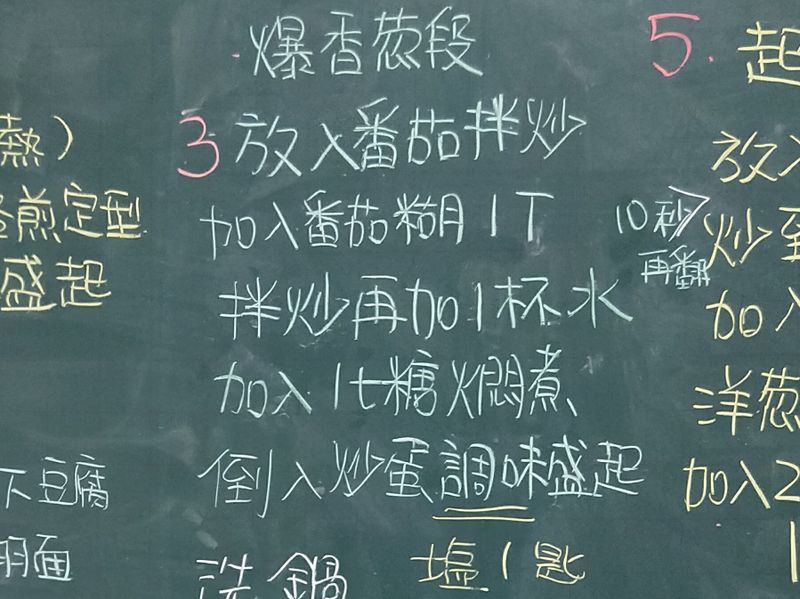 熱)
煎定型
盛起
下豆腐
面
爆香葱段
3 放入番茄拌炒
加入番茄糊1T
拌炒再加1杯水
加入1t糖燜煮、
倒入炒蛋調味盛起
塩1匙
洗鍋
10秒
再翻
5.起
放入
炒蛋
加入
洋葱
加入2
1